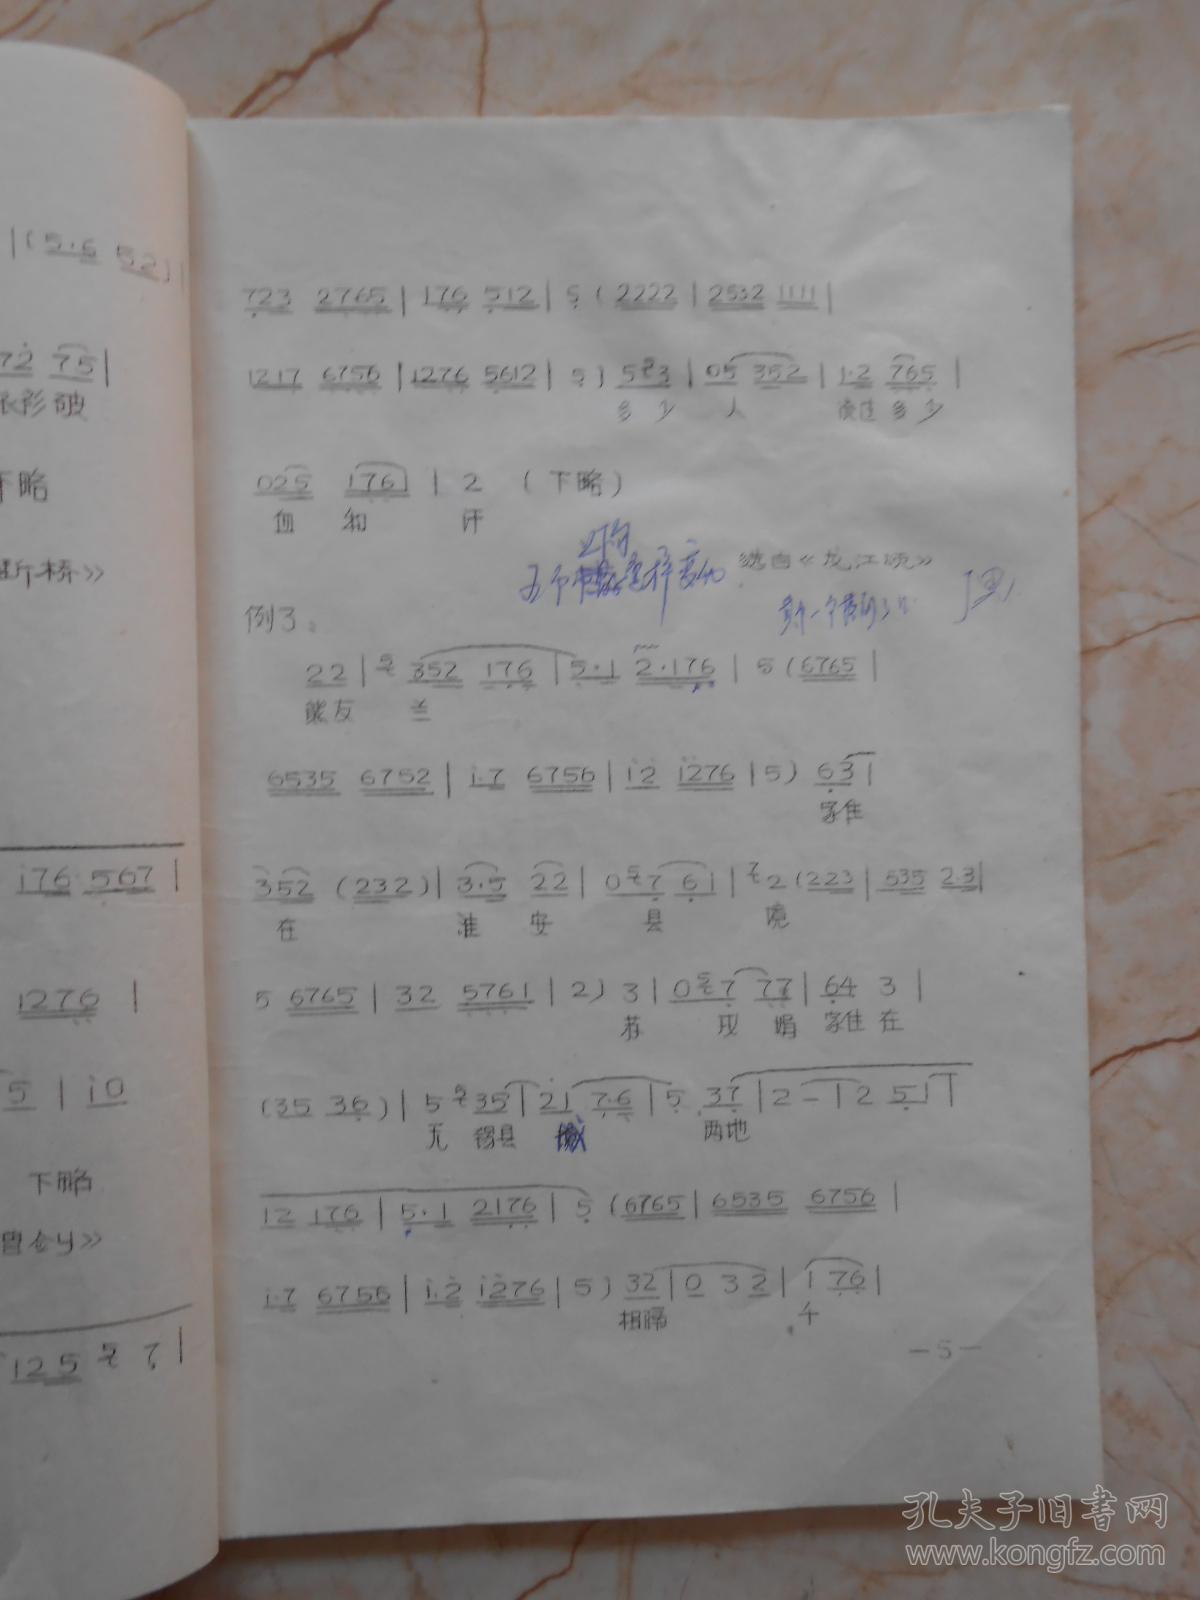 |(5·6 52)|
72 75|
张彤破
下略
断桥》
i76 567|
1276|
5|i0
下略
曾会》
125 5 7|
723 2765|176 512|5(2222|2532 1111|
1217 6756|1276 5612|5)523|05 352|1·2 765|
多少 人 流过多少
025 176|2 (下略)
血 和 汗
选自《龙江颂》
例3:
22|5 352 176|5·1 2·176|5(6765|
熊友 兰
6535 6752|i·7 6756|i2 i276|5)63|
家住
352 (232)|3·5 22|057 61|72(223|535 2·3|
在 淮 安 县 境
5 6765|32 5761|2)3|057 77|64 3|
苏 戍 娟 家住 在
(35 36)|5 2 35|21 7·6|5 37|2-|2 51|
无 锡县 城 两地
12 176|5·1 2176|5(6765|6535 6756|
i·7 6756|i·2 i276|5)32|0 3 2|1 76|
相隔 千
—5—
孔夫子旧書网
www.kongfz.com